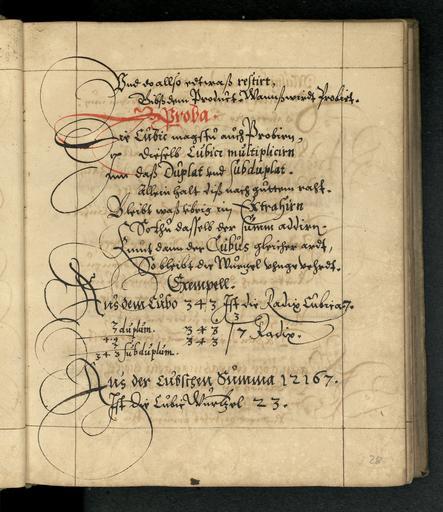 Und so allso etwaß restirt,
Gibß dem Product, Wannß wirdt Probirt.
Proba.
Die Cubic magstu auch Probirn,
Dieselb Cubici multiplicirn
Inn daß Duplat und Subduplat.
Allein halt diß nach guttem raht.
Bleibt waß ubrig im Extrahirn
So thu dasselb der Summ addirn.
Kumt dann der Cubus gleicher ardt,
So bleibt die Wurtzel unge
Exempell.
Auß dem Cubo 343 Ist die Radix Cubica 7.
3
7 duplum. 343 / 7 Radix.
343
343 Subduplum.
Auß der Cubschen Summa 12167.
Ist die Cubic Wurtzel 23.
28